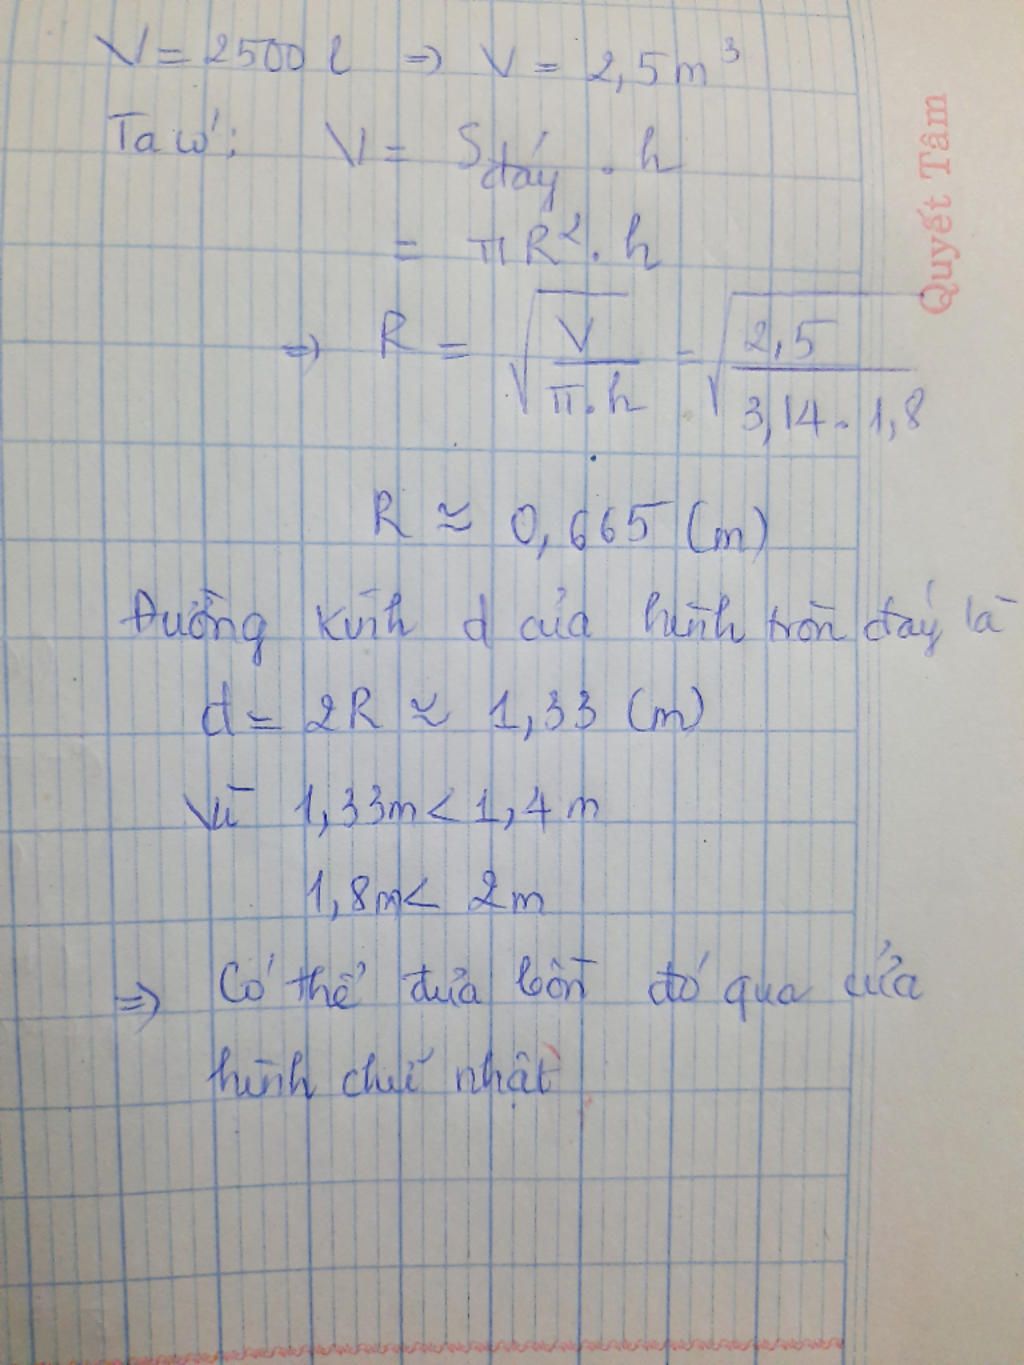 V = 2500 l ⇒ V = 2,5 m³
Ta có: V = S đáy . h
= π R² . h
⇒ R = √(V / π . h) = √(2,5 / 3,14 . 1,8)
R ≈ 0,665 (m)
Đường kính d của hình tròn đáy là
d = 2R ≈ 1,33 (m)
Vì 1,33m < 1,4 m
1,8m < 2 m
⇒ Có thể đưa bồn đó qua cửa
hình chữ nhật
Quyết Tâm